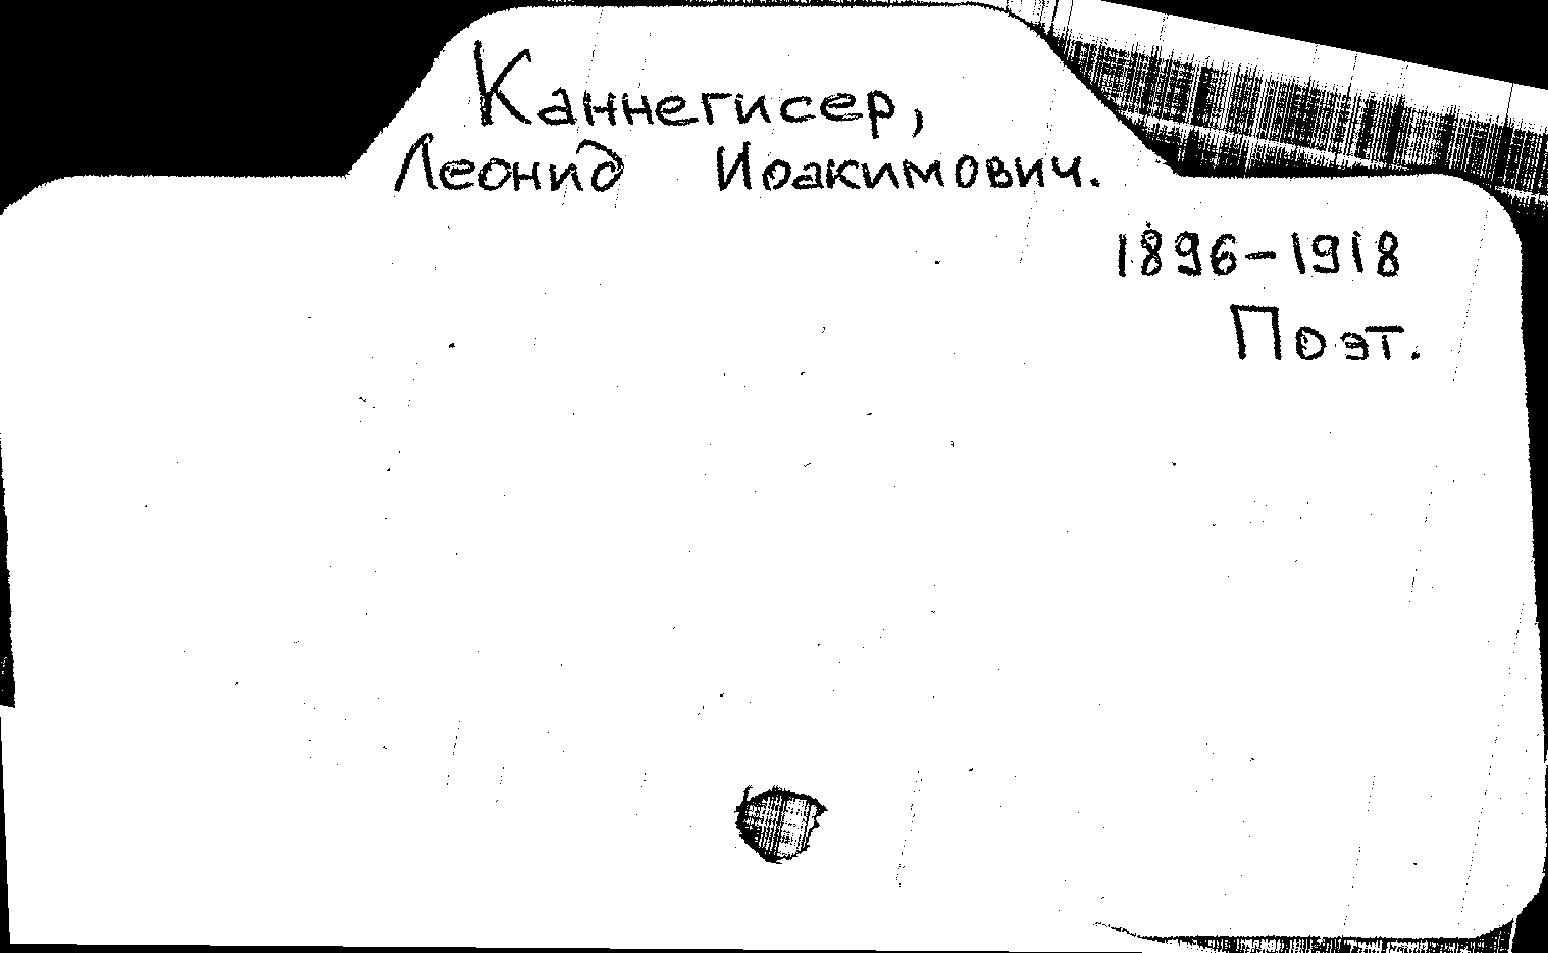 Каннегисер,
Леонид Иоакимович.
1896-1918
Поэт.